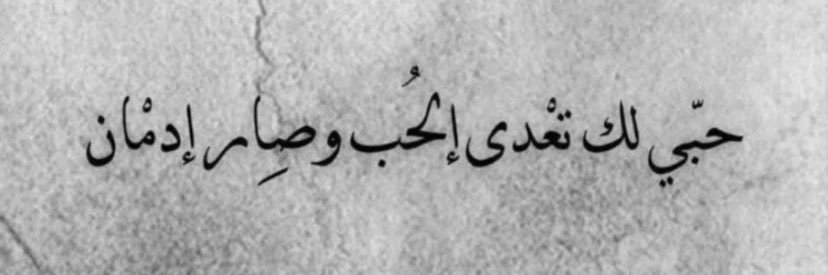 حبّي لك تعْدى إلحُب وصِار إدمْان